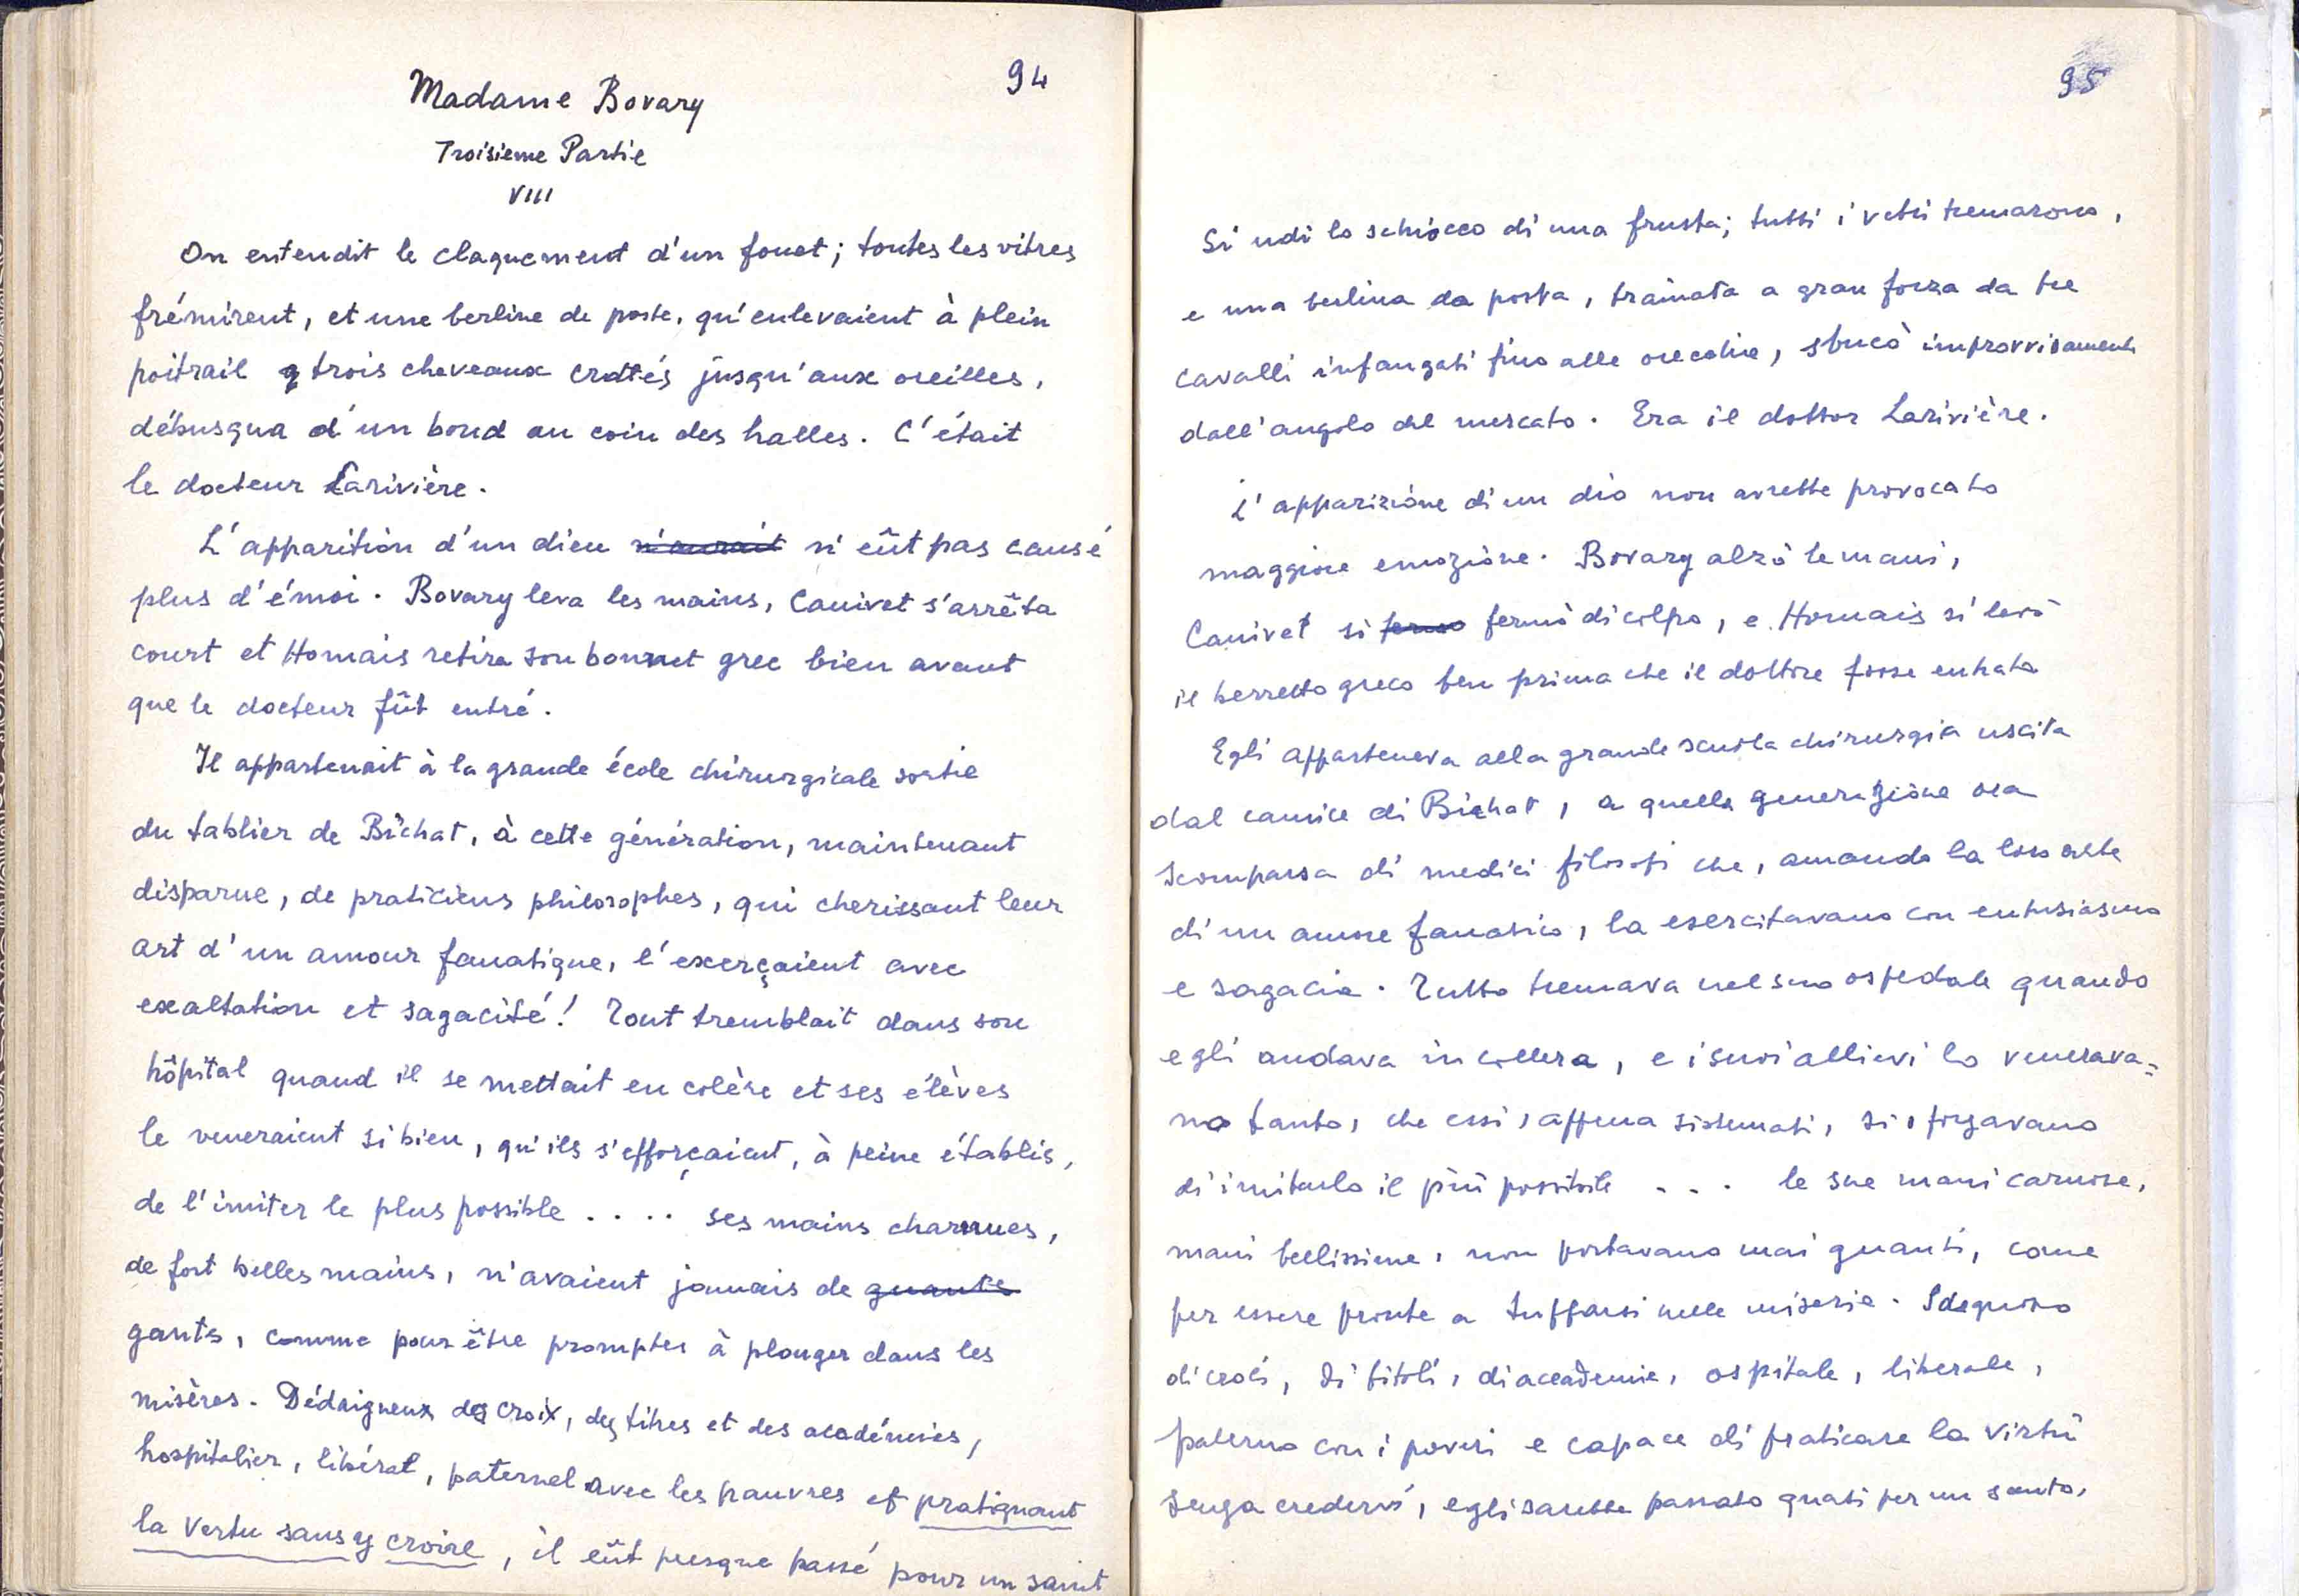 94
Madame Bovary
Troisieme Partie
VIII
On entendit le claquement d'un fouet; toutes les vitres
frémirent, et une berline de poste, qu'enlevaient à plein
poitrail trois cheveaux crottés jusqu'aux oreilles,
débusqua d'un bond au coin des halles. C'était
le docteur Larivière.
L'apparition d'un dieu n'aurait n'eût pas causé
plus d'émoi. Bovary leva les mains, Canivet s'arrêta
court et Homais retira son bonnet grec bien avant
que le docteur fût entré.
Il appartenait à la grande école chirurgicale sortie
du tablier de Bichat, à cette génération, maintenant
disparue, de praticiens philosophes, qui cherissant leur
art d'un amour fanatique, l'exerçaient avec
exaltation et sagacité! Tout tremblait dans son
hôpital quand il se mettait en colère et ses élèves
le veneraient si bien, qu'ils s'efforçaient, à peine établis,
de l'imiter le plus possible .... ses mains charnues,
de fort belles mains, n'avaient jamais de guants
gants, comme pour être promptes à plonger dans les
misères. Dédaigneux des croix, des titres et des académies,
hospitalier, libéral, paternel avec les pauvres et pratiquant
la vertu sans y croire, il eût presque passé pour un saint
95
Si udì lo schiocco di una frusta; tutti i vetri tremarono,
e una berlina da posta, trainata a gran forza da tre
cavalli infangati fino alle orecchie, sbucò improvvisamente
dall'angolo del mercato. Era il dottor Larivière.
L'apparizione di un dio non avrebbe provocato
maggiore emozione. Bovary alzò le mani,
Canivet si fermo fermò di colpo, e Homais si levò
il berretto greco ben prima che il dottore fosse entrato
Egli apparteneva alla grande scuola chirurgia uscita
dal camice di Bichat, a quella generazione ora
scomparsa di medici filosofi che, amando la loro arte
di un amore fanatico, la esercitavano con entusiasmo
e sagacia. Tutto tremava nel suo ospedale quando
egli andava in collera, e i suoi allievi lo venerava=
no tanto, che essi, appena sistemati, si sforzavano
di imitarlo il più possibile ... le sue mani carnose,
mani bellissime, non portavano mai guanti, come
per essere pronte a tuffarsi nelle miserie. Sdegnoso
di croci, di titoli, di accademie, ospitale, liberale,
paterno con i poveri e capace di praticare la virtù
senza credervi, egli sarebbe passato quasi per un santo,